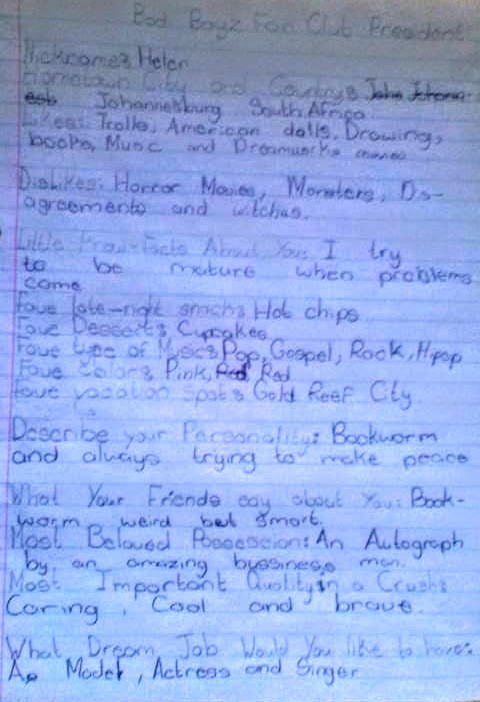 Bad Boyz Fan Club President
Nickname: Helen
Hometown City and Country:
Johannesburg South Africa
Likes: Trolls, American dolls, Drawing,
books, Music and Dreamworks movies
Dislikes: Horror Movies, Monsters, Dis-
agreements and witches.
Little Know-Facts About You: I try
to be mature when problems
come
Fave late-night snack: Hot chips
Fave Desserts: Cupcakes
Fave type of Music: Pop, Gospel, Rock, Hipop
Fave Colors: Pink, Red
Fave vacation spots: Gold Reef City
Describe your Personality: Bookworm
and always trying to make peace
What Your Friends say about You: Book-
worm weird but smart.
Most Beloved Possession: An Autograph
by an amazing bussiness man.
Most Important Quality in a Crush:
Caring, Cool and brave.
What Dream Job Would You like to have:
A Model, Actress and Singer